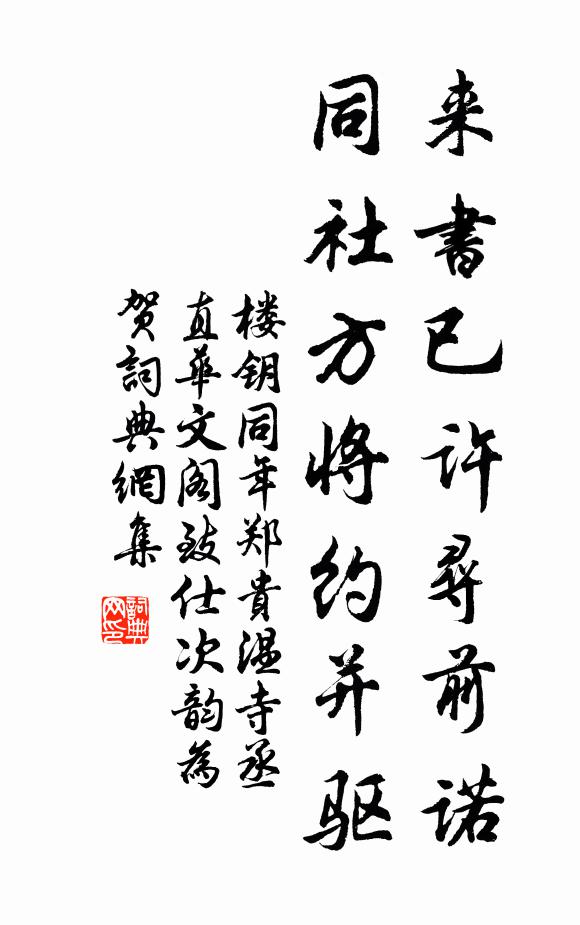 来書已许尋前诺
同社方將约并驱
楼钥同年郑貴温寺丞
直華文阁致仕次韵為
贺詞典網集
詞典网印